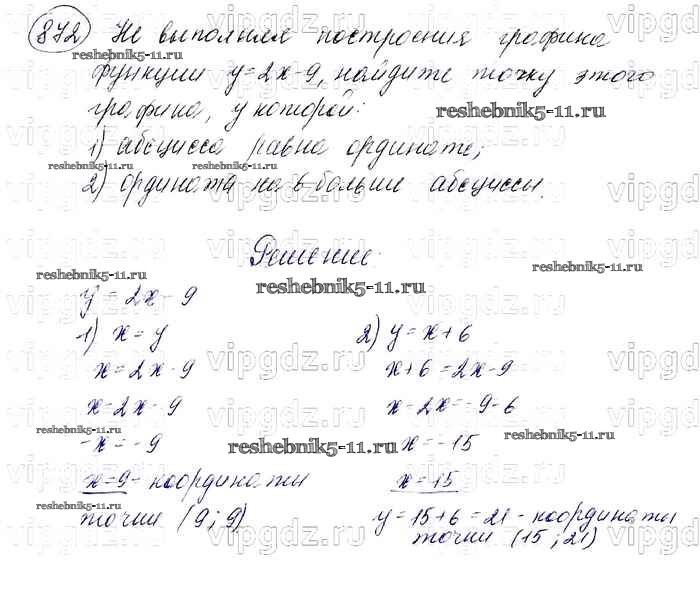 872) Не выполняя построения графика
функции y=2x-9, найдите точку этого
графика, у которой:
1) абсцисса равна ординате;
2) ордината на 6 больше абсциссы.
Решение:
y = 2x - 9
1) x = y
x = 2x - 9
x = 2x - 9
-x = -9
x = 9 - координаты
точки (9; 9)
2) y = x + 6
x + 6 = 2x - 9
x - 2x = -9 - 6
x = -15
x = 15
y = 15 + 6 = 21 - координаты
точки (15; 21)
reshebnik5-11.ru
reshebnik5-11.ru
reshebnik5-11.ru
reshebnik5-11.ru
reshebnik5-11.ru
reshebnik5-11.ru
reshebnik5-11.ru
reshebnik5-11.ru
reshebnik5-11.ru
reshebnik5-11.ru
reshebnik5-11.ru
vipgdz.ru